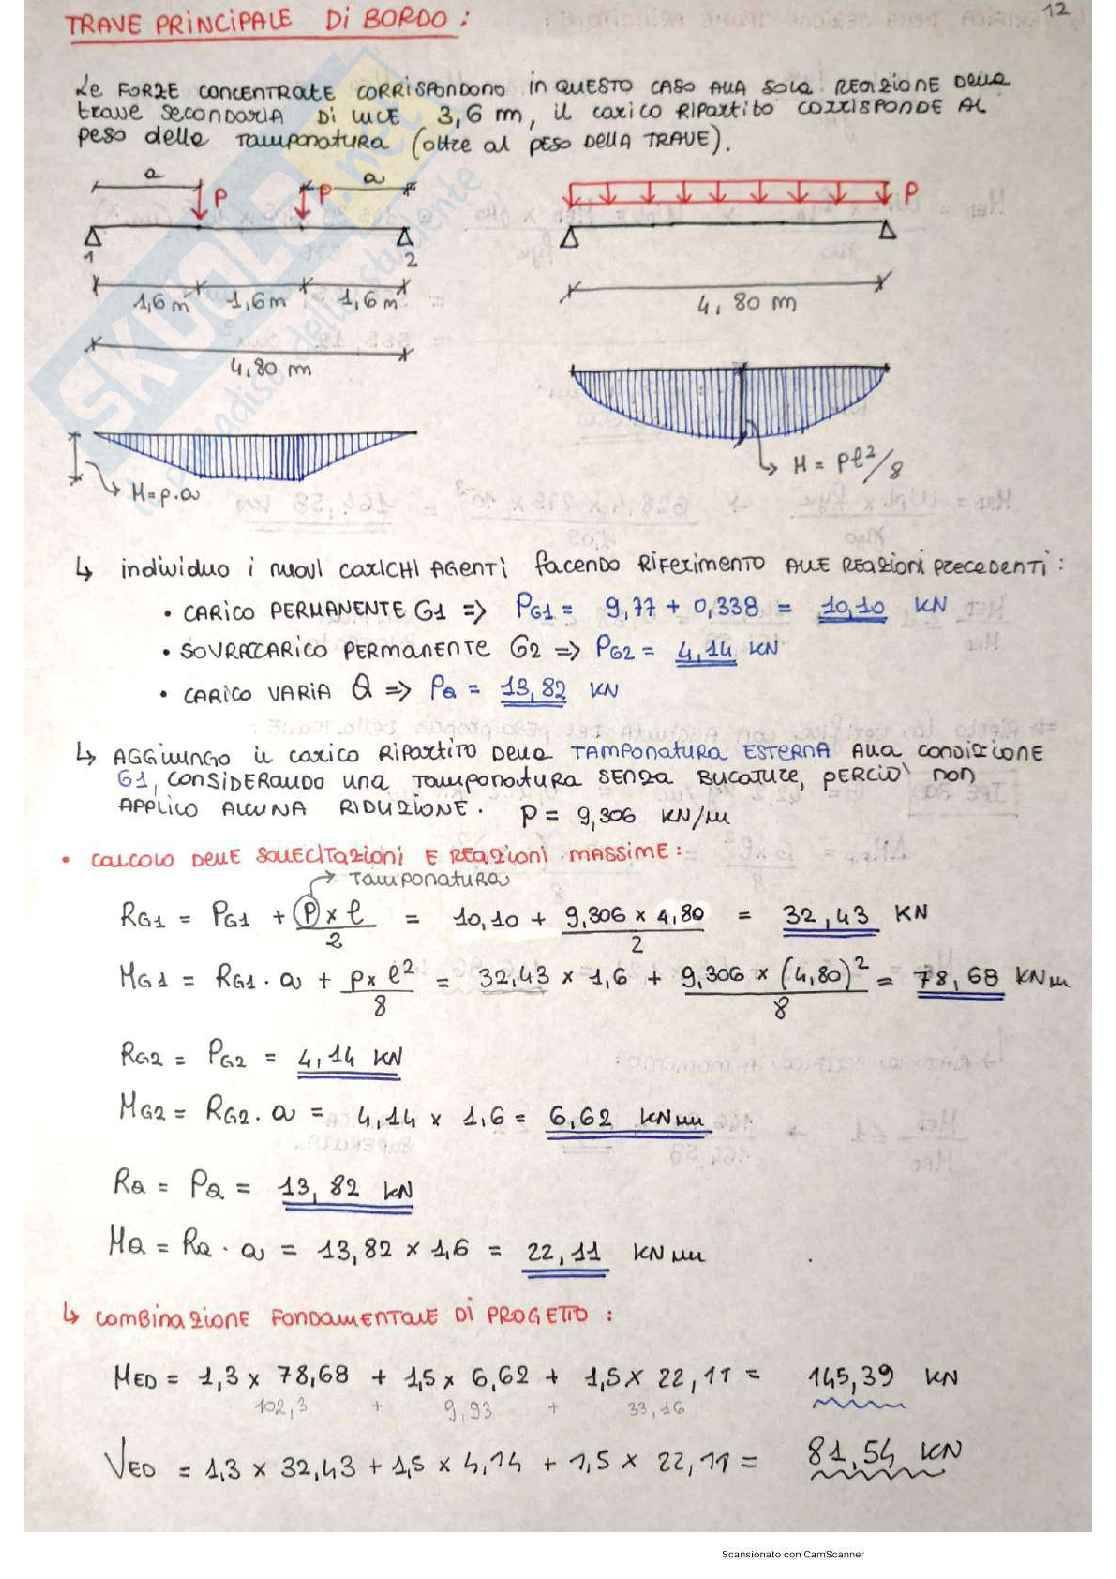 12
TRAVE PRINCIPALE DI BORDO :
Le FORZE CONCENTRATE CORRISPONDONO in QUESTO CASO ALLA SOLA REAZIONE DELLA
trave SECONDARIA DI LUCE 3,6 m, il carico RIPARTITO CORRISPONDE AL
peso della TAMPONATURA (oltre al PESO DELLA TRAVE).
a P P a P
1 2
1,6 m 1,6 m 1,6 m 4,80 m
4,80 m
M = Pℓ²/8
M=p.a
↳ individuo i nuovi CARICHI AGENTI facendo RIFERIMENTO ALLE REAZIONI PRECEDENTI :
• CARICO PERMANENTE G1 => PG1 = 9,77 + 0,338 = 10,10 KN
• SOVRACCARICO PERMANENTE G2 => PG2 = 4,14 KN
• CARICO VARIA Q => PQ = 13,82 KN
↳ AGGIUNGO il carico RIPARTITO DELLA TAMPONATURA ESTERNA ALLA CONDIZIONE
G1, CONSIDERANDO una TAMPONATURA SENZA BUCATURE, PERCIO' NON
APPLICO ALCUNA RIDUZIONE. P = 9,306 KN/m
• CALCOLO DELLE SOLLECITAZIONI E REAZIONI MASSIME :
→ TAMPONATURA
RG1 = PG1 + P x ℓ / 2 = 10,10 + 9,306 x 4,80 / 2 = 32,43 KN
MG1 = RG1 . a + P x ℓ² / 8 = 32,43 x 1,6 + 9,306 x (4,80)² / 8 = 78,68 KNm
RG2 = PG2 = 4,14 KN
MG2 = RG2 . a = 4,14 x 1,6 = 6,62 KNm
RQ = PQ = 13,82 KN
MQ = RQ . a = 13,82 x 1,6 = 22,11 KNm
↳ COMBINAZIONE FONDAMENTALE DI PROGETTO :
MED = 1,3 x 78,68 + 1,5 x 6,62 + 1,5 x 22,11 = 145,39 KN
102,3 + 9,93 + 33,16
VED = 1,3 x 32,43 + 1,5 x 4,14 + 1,5 x 22,11 = 81,54 KN
Scansionato con CamScanner